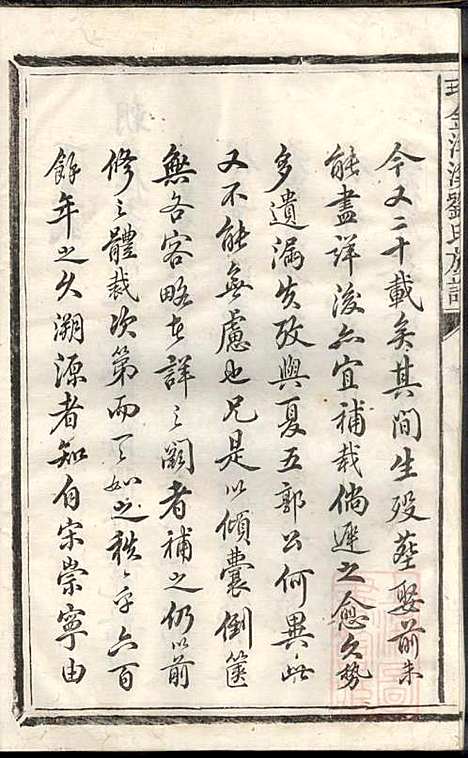 今又二十載矣其間生殁塟娶前未
能盡詳後亦宜補栽倘遲之愈久勢
多遺漏失攷與夏五郭公何異此
又不能無慮也兄是以傾囊倒篋
無吝客略者詳之闕者補之仍以前
修之體裁次第而一一如之秩秩乎六百
餘年之久溯源者知自宋崇寧由
劉氏族譜